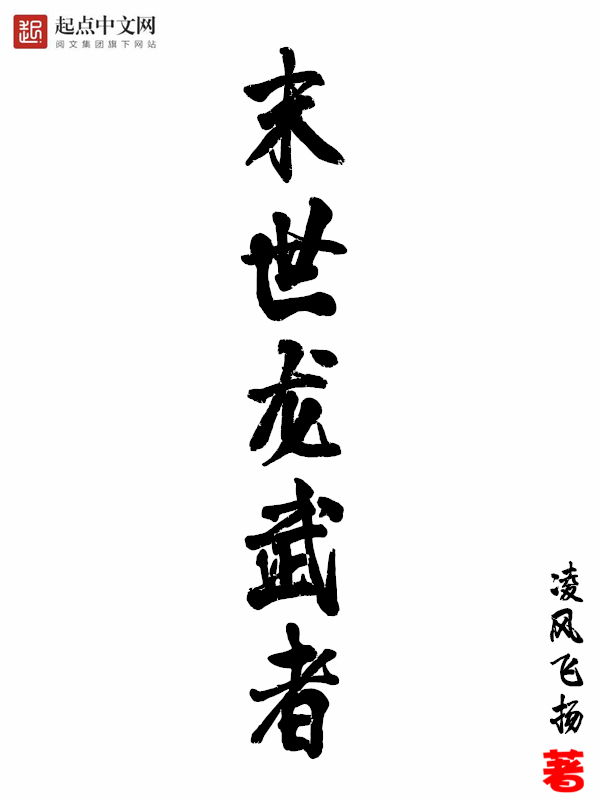 起点中文网
阅文集团旗下网站
末世龙武者
凌风飞扬
著